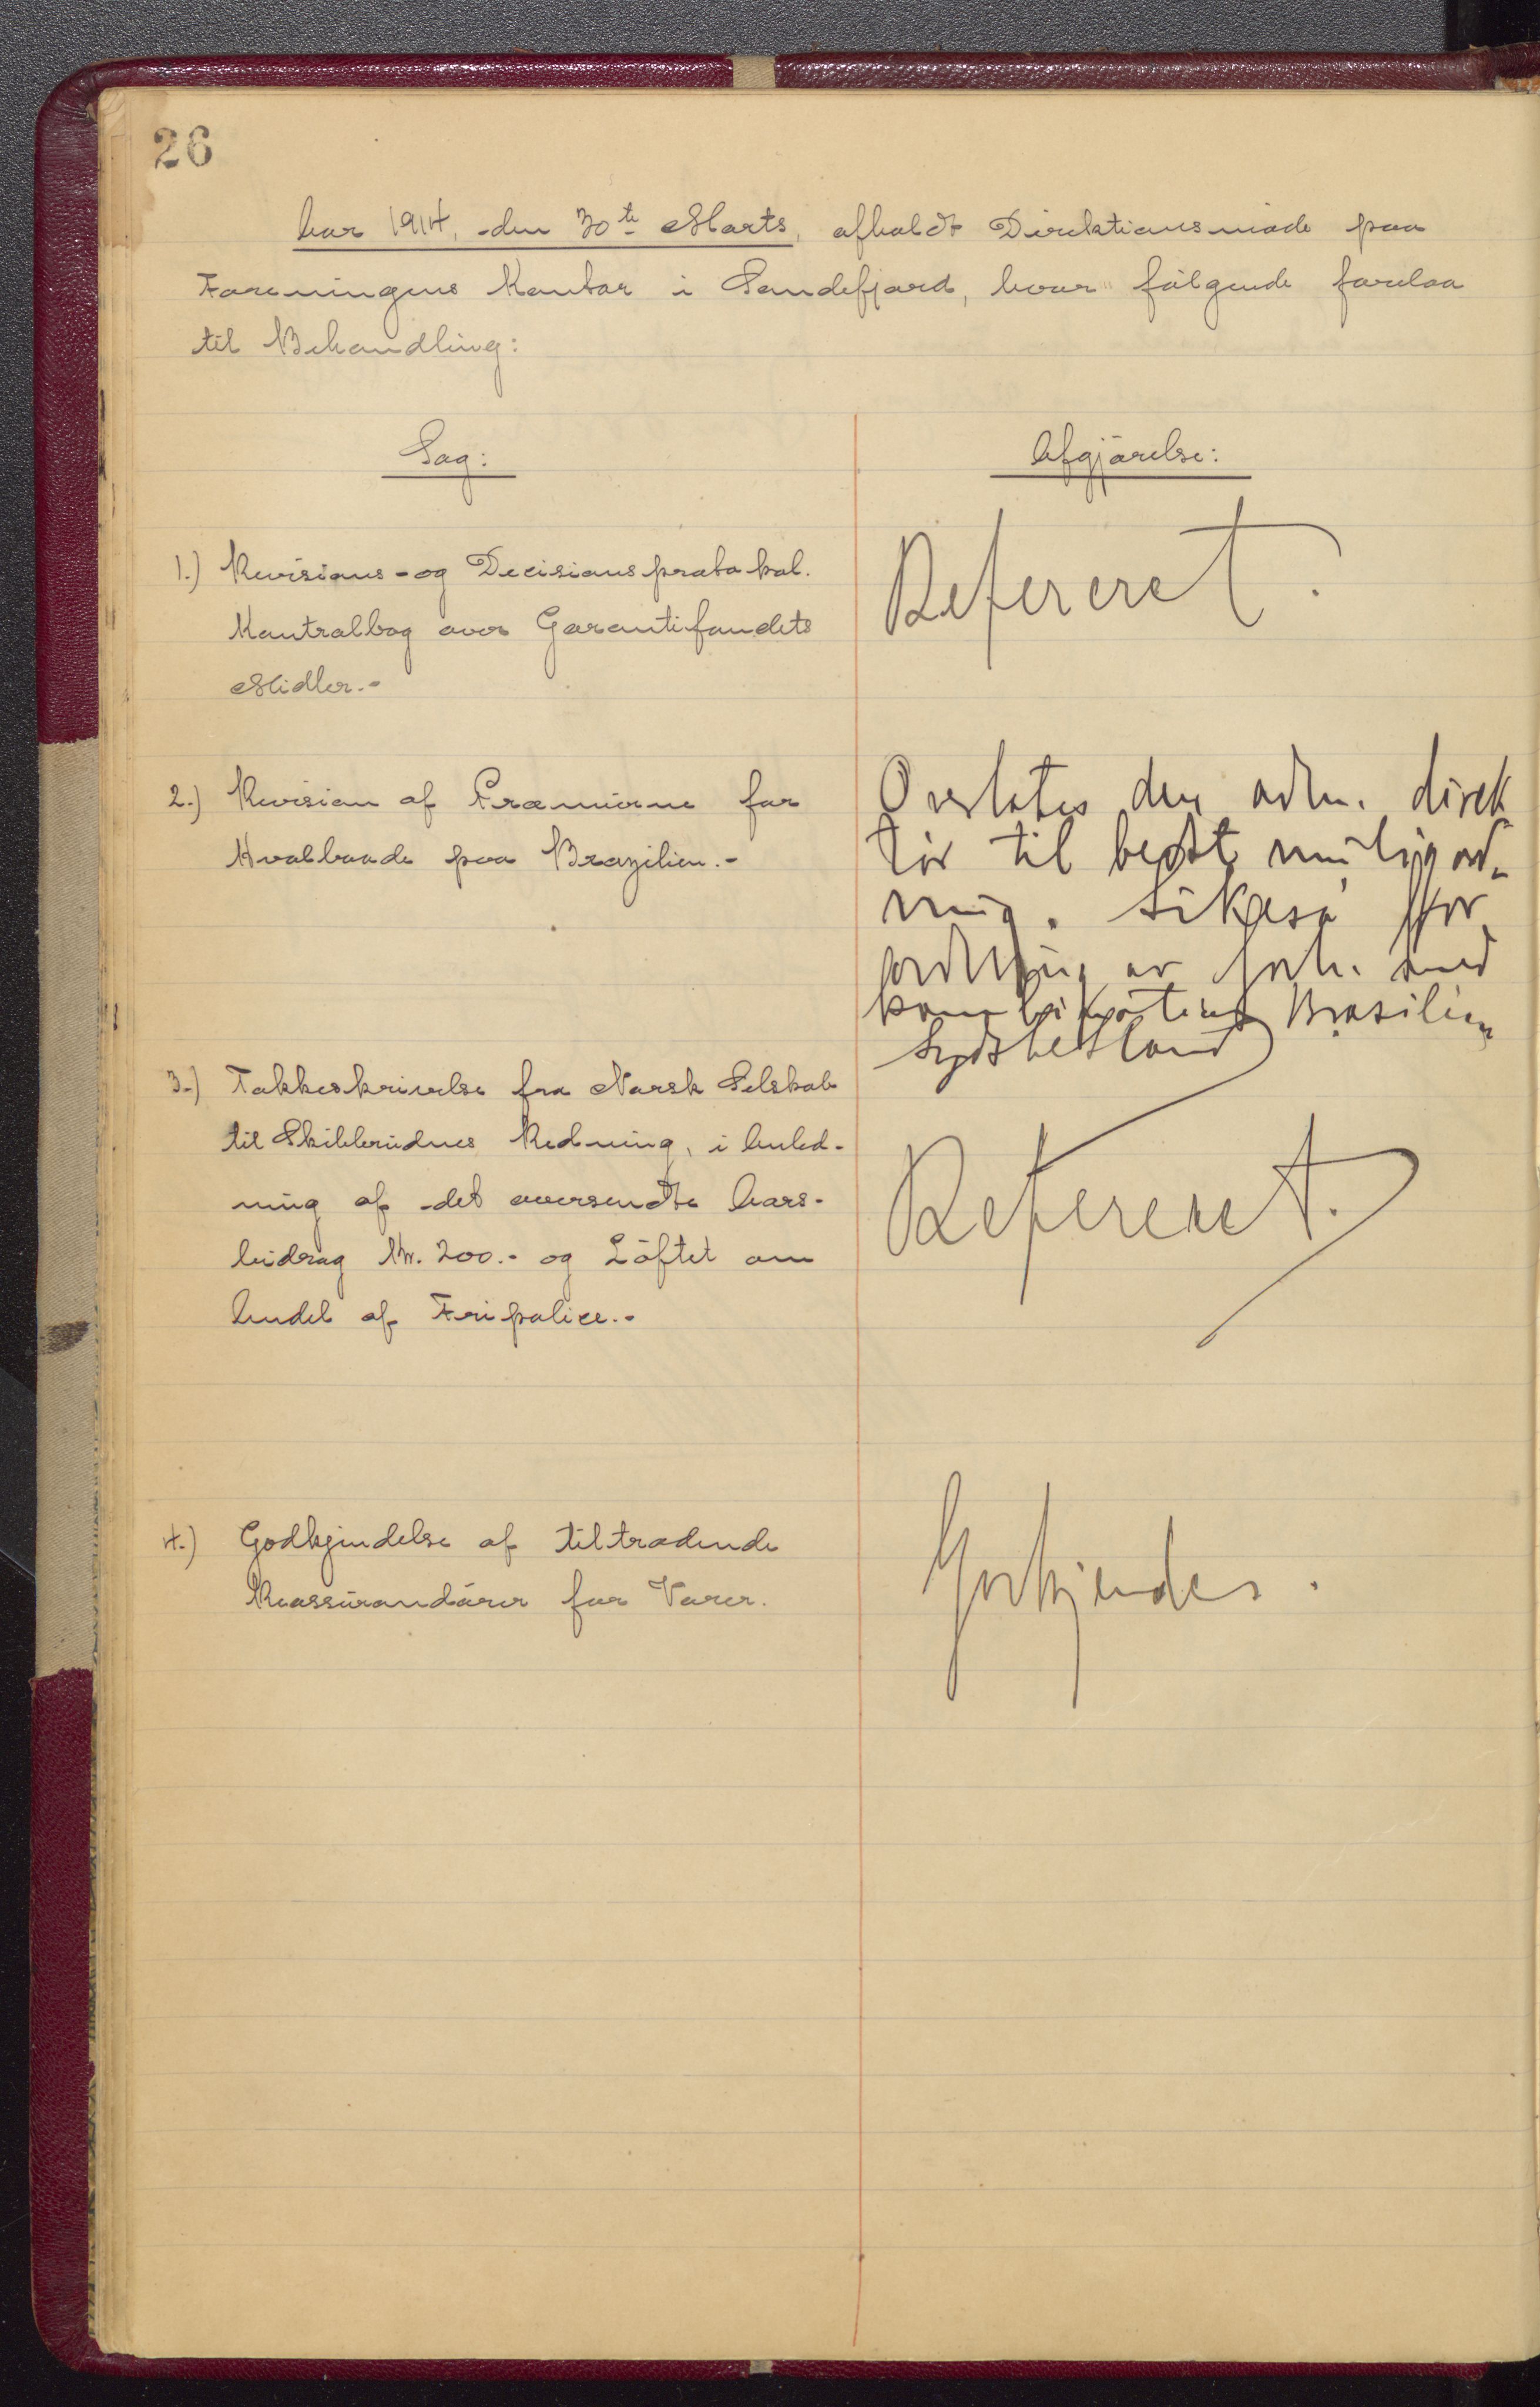 26
Aar 1914, den 30te Marts, afholdt Direktionsmøde paa
Foreningens Kontor i Sandefjord, hvor følgende forelaa
til Behandling:
Sag:
Afgjørelse:
1.) Revisions- og Decisionsprotokol.
Kontrolbog over Garantifondets
Midler.-
Refereret.
2.) Revision af Præmierne for
Hvalbaade paa Brazilien.-
Overlates den adm. direk
tør til bedst mulig ord-
ning. Likeså for
ordning av forh. med
kombination Brasilien
Sydshetland
3.) Takkeskrivelse fra Norsk Selskab
til Skibbrudnes Redning, i Anled-
ning af det oversendte Aars-
bidrag Kr. 200.- og Löftet om
Andel af Fripolice.-
Refereret.
4.) Godkjendelse af tiltrædende
Reassurandører for Varer.
Godkjendes.